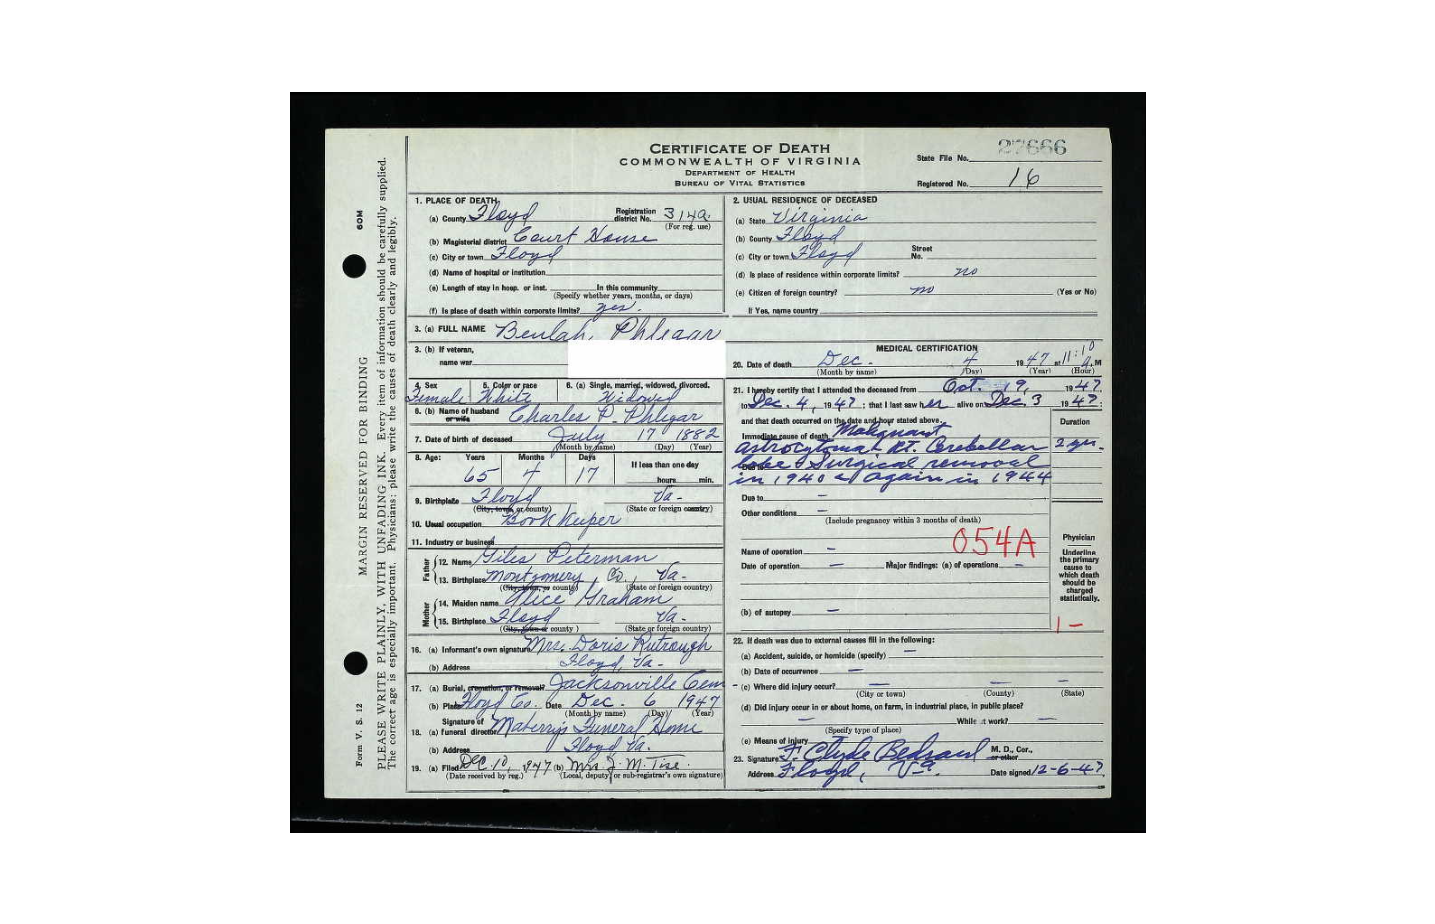 CERTIFICATE OF DEATH
COMMONWEALTH OF VIRGINIA
DEPARTMENT OF HEALTH
BUREAU OF VITAL STATISTICS
State File No. 27666
Registered No. 16
60M
MARGIN RESERVED FOR BINDING
Form V. S. 12
PLEASE WRITE PLAINLY, WITH UNFADING INK. Every item of information should be carefully supplied.
The correct age is especially important. Physicians: please write the causes of death clearly and legibly.
1. PLACE OF DEATH
(a) County Floyd Registration district No. 314a
(For reg. use)
(b) Magisterial district Court House
(c) City or town Floyd
(d) Name of hospital or institution
(e) Length of stay in hosp. or inst. In this community
(Specify whether years, months, or days)
(f) Is place of death within corporate limits? yes.
2. USUAL RESIDENCE OF DECEASED
(a) State Virginia
(b) County Floyd
(c) City or town Floyd Street No.
(d) Is place of residence within corporate limits? no
(e) Citizen of foreign country? no (Yes or No)
If Yes, name country
3. (a) FULL NAME Beulah Phlegar
3. (b) If veteran,
name war
4. Sex 5. Color or race 6. (a) Single, married, widowed, divorced.
Female White Widowed
6. (b) Name of husband or wife Charles P. Phlegar
7. Date of birth of deceased July 17 1882
(Month by name) (Day) (Year)
8. Age: Years Months Days If less than one day
65 4 17 hours min.
9. Birthplace Floyd Va-
(City, town, or county) (State or foreign country)
10. Usual occupation Book Keeper
11. Industry or business
Father
12. Name Giles Peterman
13. Birthplace Montgomery Co., Va-
(City, town, or county) (State or foreign country)
Mother
14. Maiden name Alice Graham
15. Birthplace Floyd Va-
(City, town or county) (State or foreign country)
16. (a) Informant's own signature Mrs. Doris Rutrough
(b) Address Floyd, Va-
17. (a) Burial, cremation, or removal? Jacksonville Cem
(b) Place Floyd Co. Date Dec. 6 1947
(Month by name) (Day) (Year)
18. Signature of (a) funeral director Funeral Home
(b) Address Floyd Va.
19. (a) Filed Dec 10, 1947 (b) Mrs. J. M. Tise.
(Date received by reg.) (Local, deputy or sub-registrar's own signature)
MEDICAL CERTIFICATION
20. Date of death Dec. 4 1947 at 11:10 a M
(Month by name) (Day) (Year) (Hour)
21. I hereby certify that I attended the deceased from Oct. 19, 1947
to Dec. 4, 1947: that I last saw her alive on Dec. 3 1947:
and that death occurred on the date and hour stated above.
Duration
Immediate cause of death Malignant
astrocytoma Rt. Cerebellar 2 yr.
lobe Surgical removal
in 1940 & again in 1944
Due to
Due to —
Other conditions —
(Include pregnancy within 3 months of death)
054A
Name of operation —
Date of operation — Major findings: (a) of operations —
(b) of autopsy —
Physician
Underline the primary cause to which death should be charged statistically.
1-
22. If death was due to external causes fill in the following:
(a) Accident, suicide, or homicide (specify) —
(b) Date of occurrence —
(c) Where did injury occur? — — —
(City or town) (County) (State)
(d) Did injury occur in or about home, on farm, in industrial place, in public place?
— While at work? —
(Specify type of place)
(e) Means of injury
23. Signature F. Clyde Bedsaul M. D., Cor., or other
Address Floyd, Va. Date signed 12-6-47